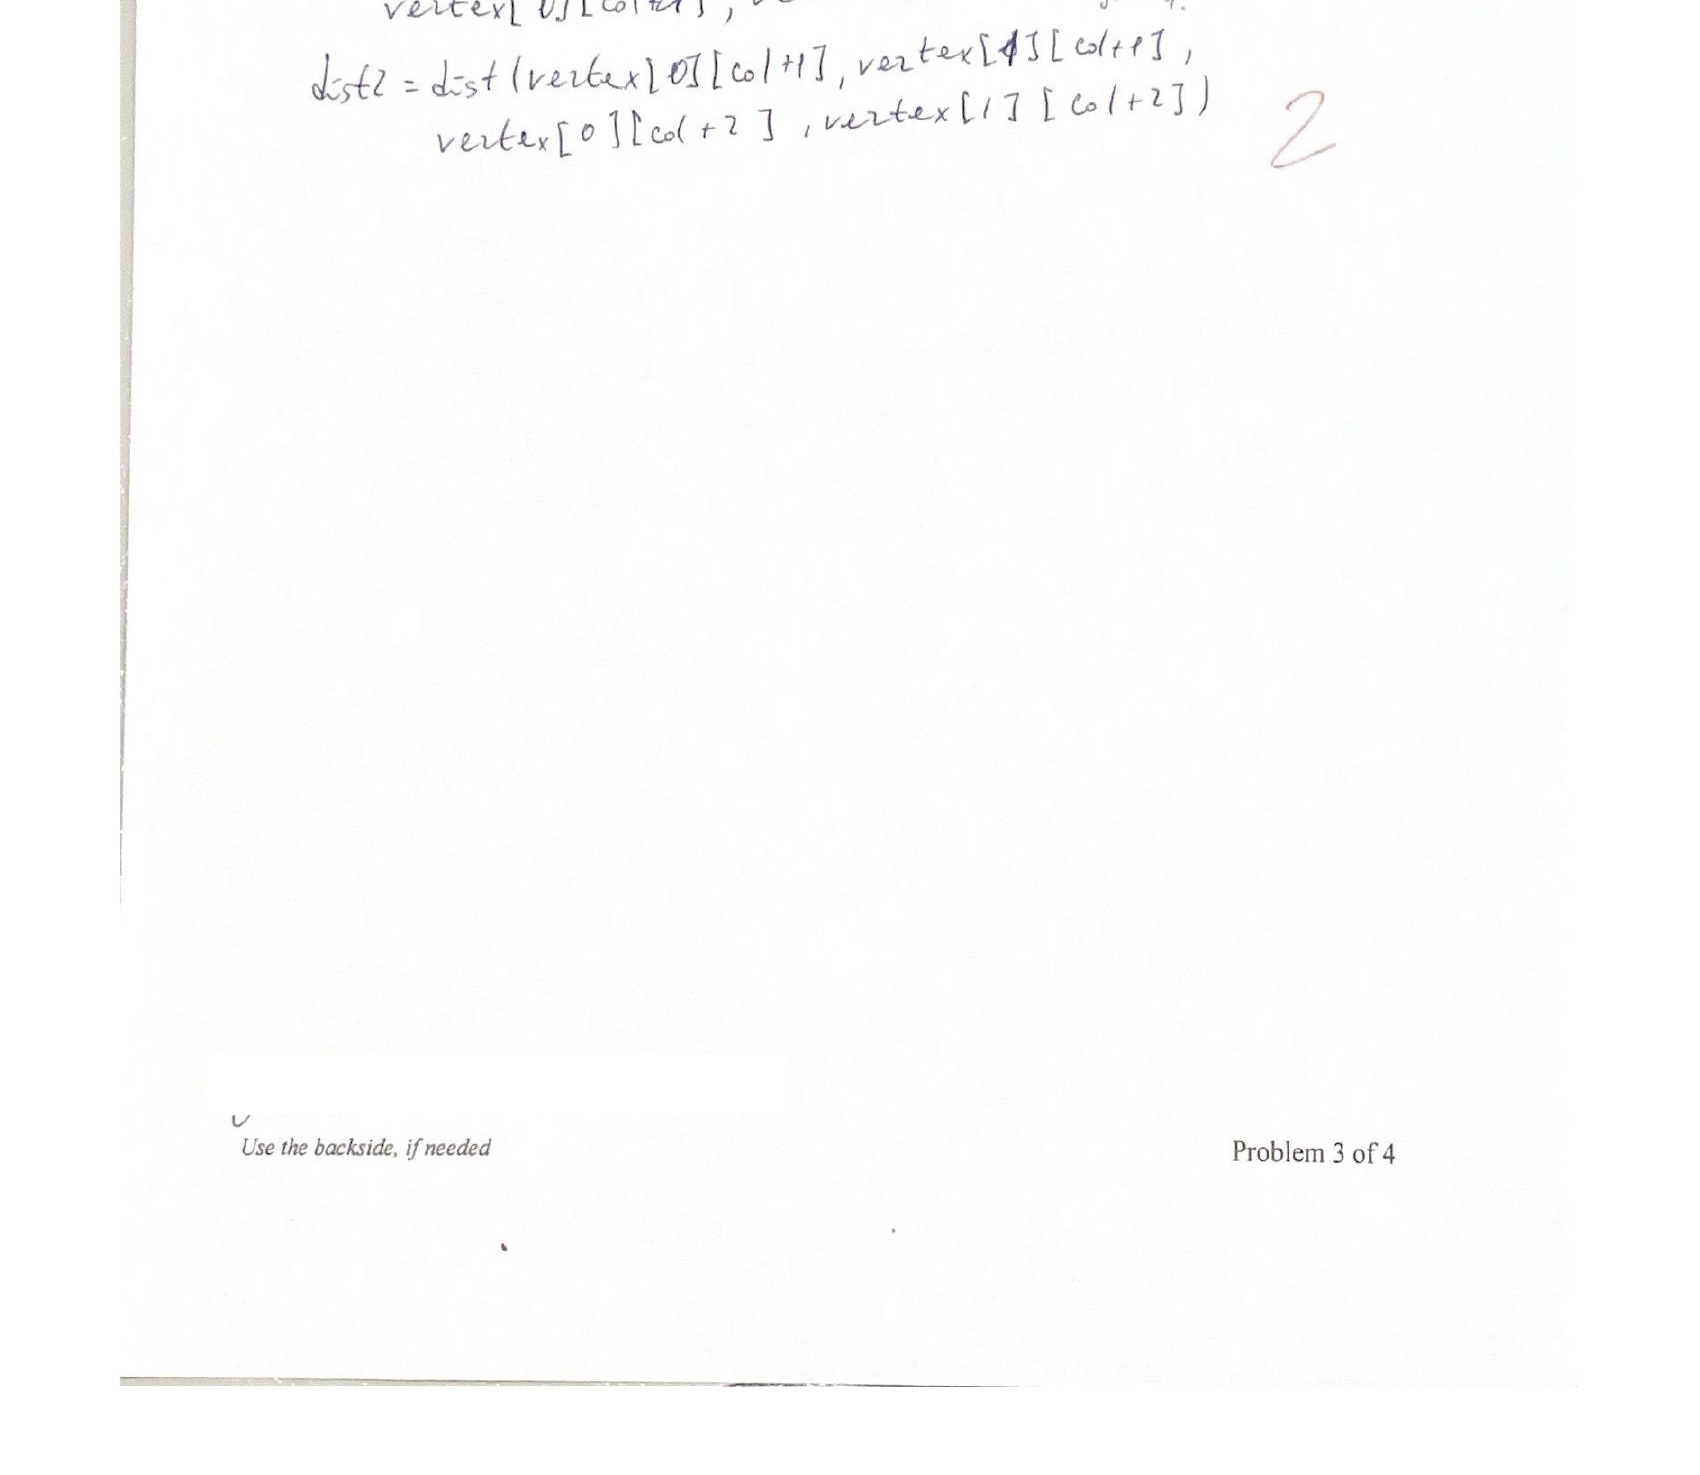 vertex[0][col+1],
dist2 = dist(vertex[0][col+1], vertex[1][col+1],
vertex[0][col+2], vertex[1][col+2])
2
Use the backside, if needed
Problem 3 of 4